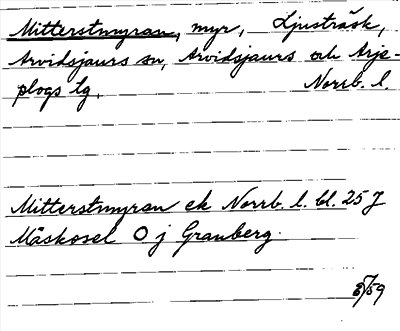 Mitterstmyran, myr, Ljusträsk,
Arvidsjaurs sn, Arvidsjaurs och Arje-
plogs lg. Norrb. l.
Mitterstmyran ek Norrb. l. bl. 25 J
Mäskosel O j Granberg.